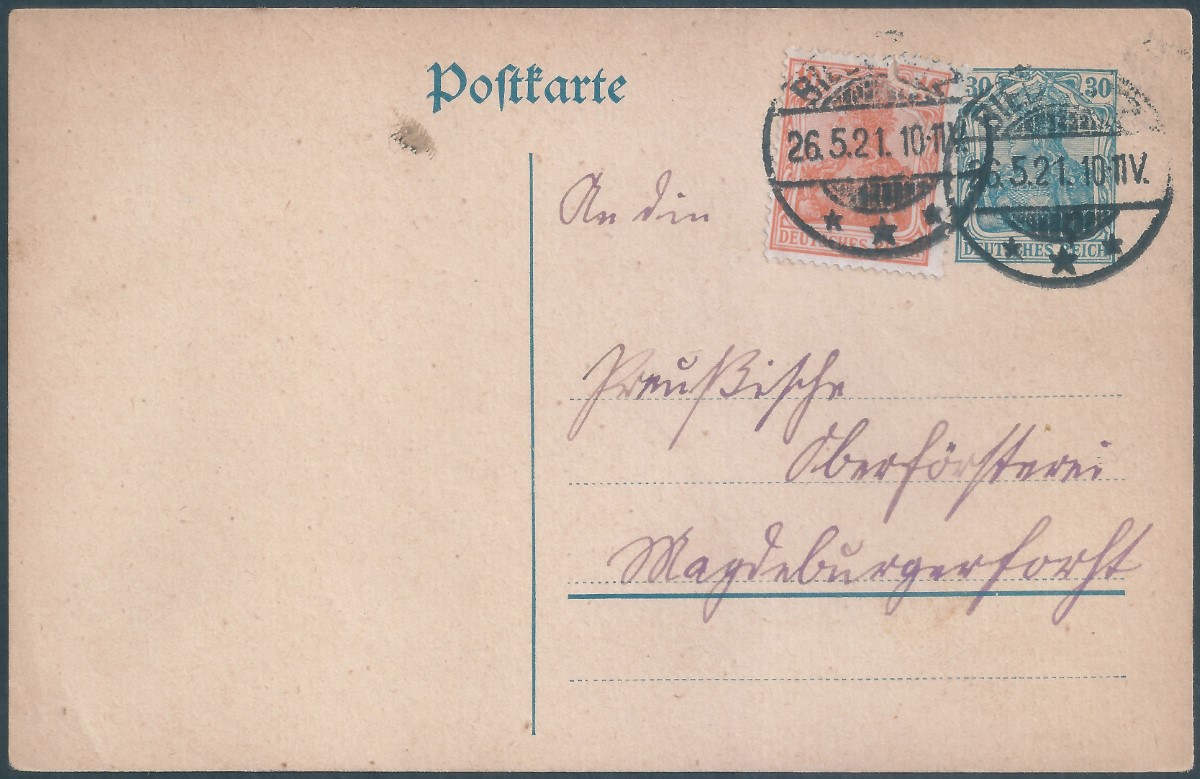 Postkarte
30 30
26.5.21. 10-11V.
26.5.21. 10-11V.
DEUTSCHES
DEUTSCHES REICH
An die
Preußische
Oberförsterei
Magdeburgerforst